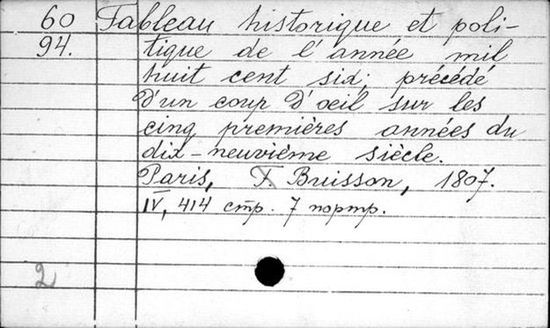 60 Tableau historique et poli-
94. tique de l'année mil
huit cent six; précédé
d'un coup d'oeil sur les
cinq premières années du
dix-neuvième siècle.
Paris, F Buisson, 1807.
IV, 414 стр. 7 портр.
2